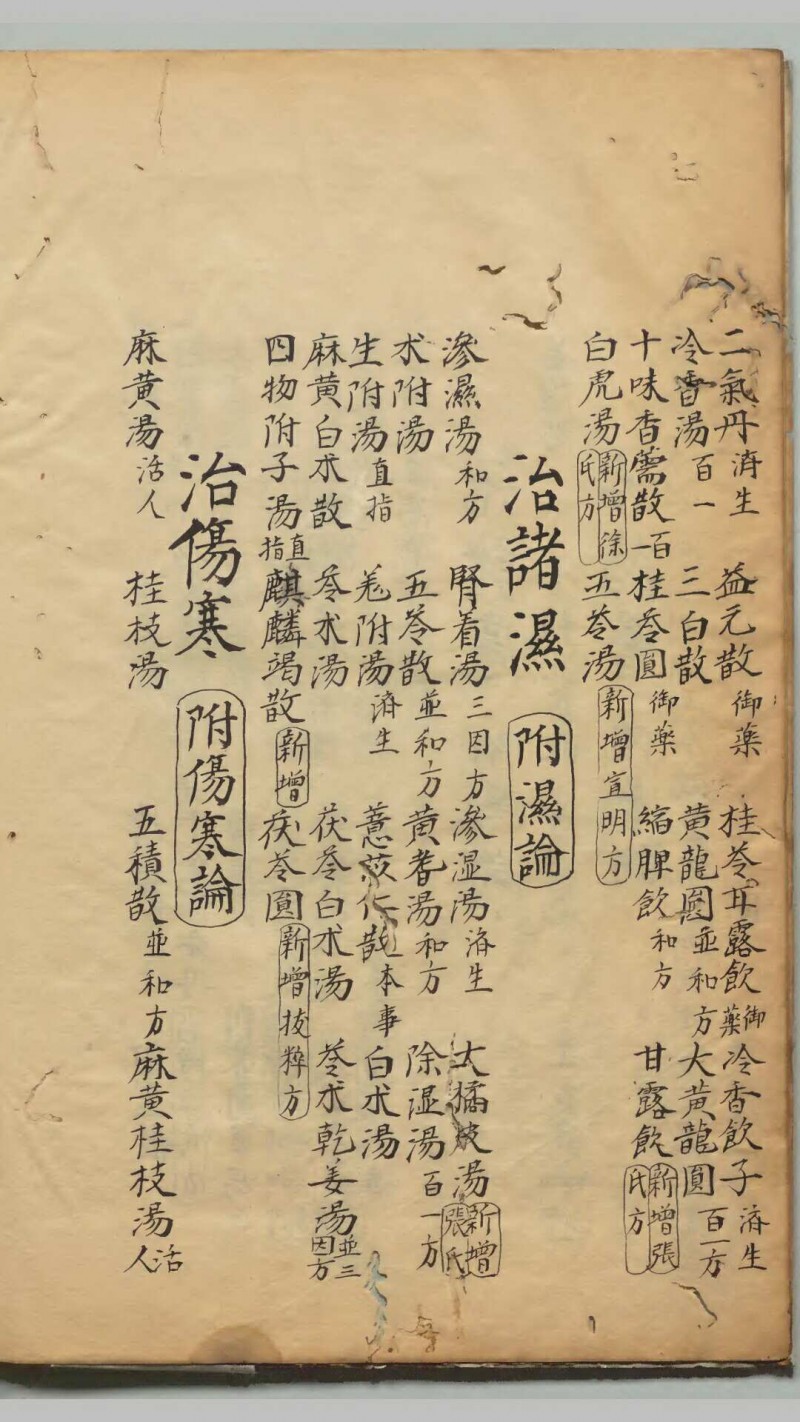 二氣丹 濟生 益元散 御藥 桂苓甘露飲 御藥 冷香飲子 済生
冷香湯 百一 三白散 黄龍圓 並和方 大黄龍圓 百一方
十味香薷散 百一 桂苓圓 御藥 縮脾飲 和方 甘露飲 新増張氏方
白虎湯 新増徐氏方 五苓湯 新增宣明方
治諸濕 附濕論
滲濕湯 和方 腎着湯 三因方 滲湿湯 済生 大橘皮湯 新增張氏
朮附湯 五苓散 並和方 黄耆湯 和方 除湿湯 百一方
生附湯 直指 羗附湯 済生 薏苡仁散 本事 白朮湯
麻黄白朮散 苓朮湯 茯苓白朮湯 苓朮乾姜湯 並三因方
四物附子湯 直指 麒麟竭散 新增 茯苓圓 新増拔粹方
治傷寒 附傷寒論
麻黄湯 活人 桂枝湯 五積散 並和方 麻黄桂枝湯 活人